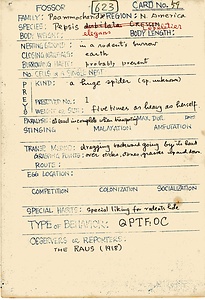 FOSSOR 623 CARD No. 59
FAMILY: Psammocharidae REGION: N. America
SPECIES: Pepsis
BODY WEIGHT: elegans BODY LENGTH:
NESTING GROUND: in a rodent's burrow
CLOSING MATERIAL: earth
BURROWING HABIT: probably present
No. CELLS IN A SINGLE NEST
KIND: a huge spider (sp. unknown)
PREY No.:
WEIGHT: Five times as heavy as herself
PARALYSIS: almost incomplete when DUR.
STINGING MALAXATION AMPUTATION
TRANSP. METHOD: dragging backward going by its head
over sides, stones, grasses up and down
ROUTE:
EGG LOCATION:
COMPETITION COLONIZATION SOCIALIZATION
SPECIAL HABITS: Special liking for rodents hole
TYPE OF BEHAVIOR: QPTROC
OBSERVERS OR REPORTERS:
THE RAUS (1918)